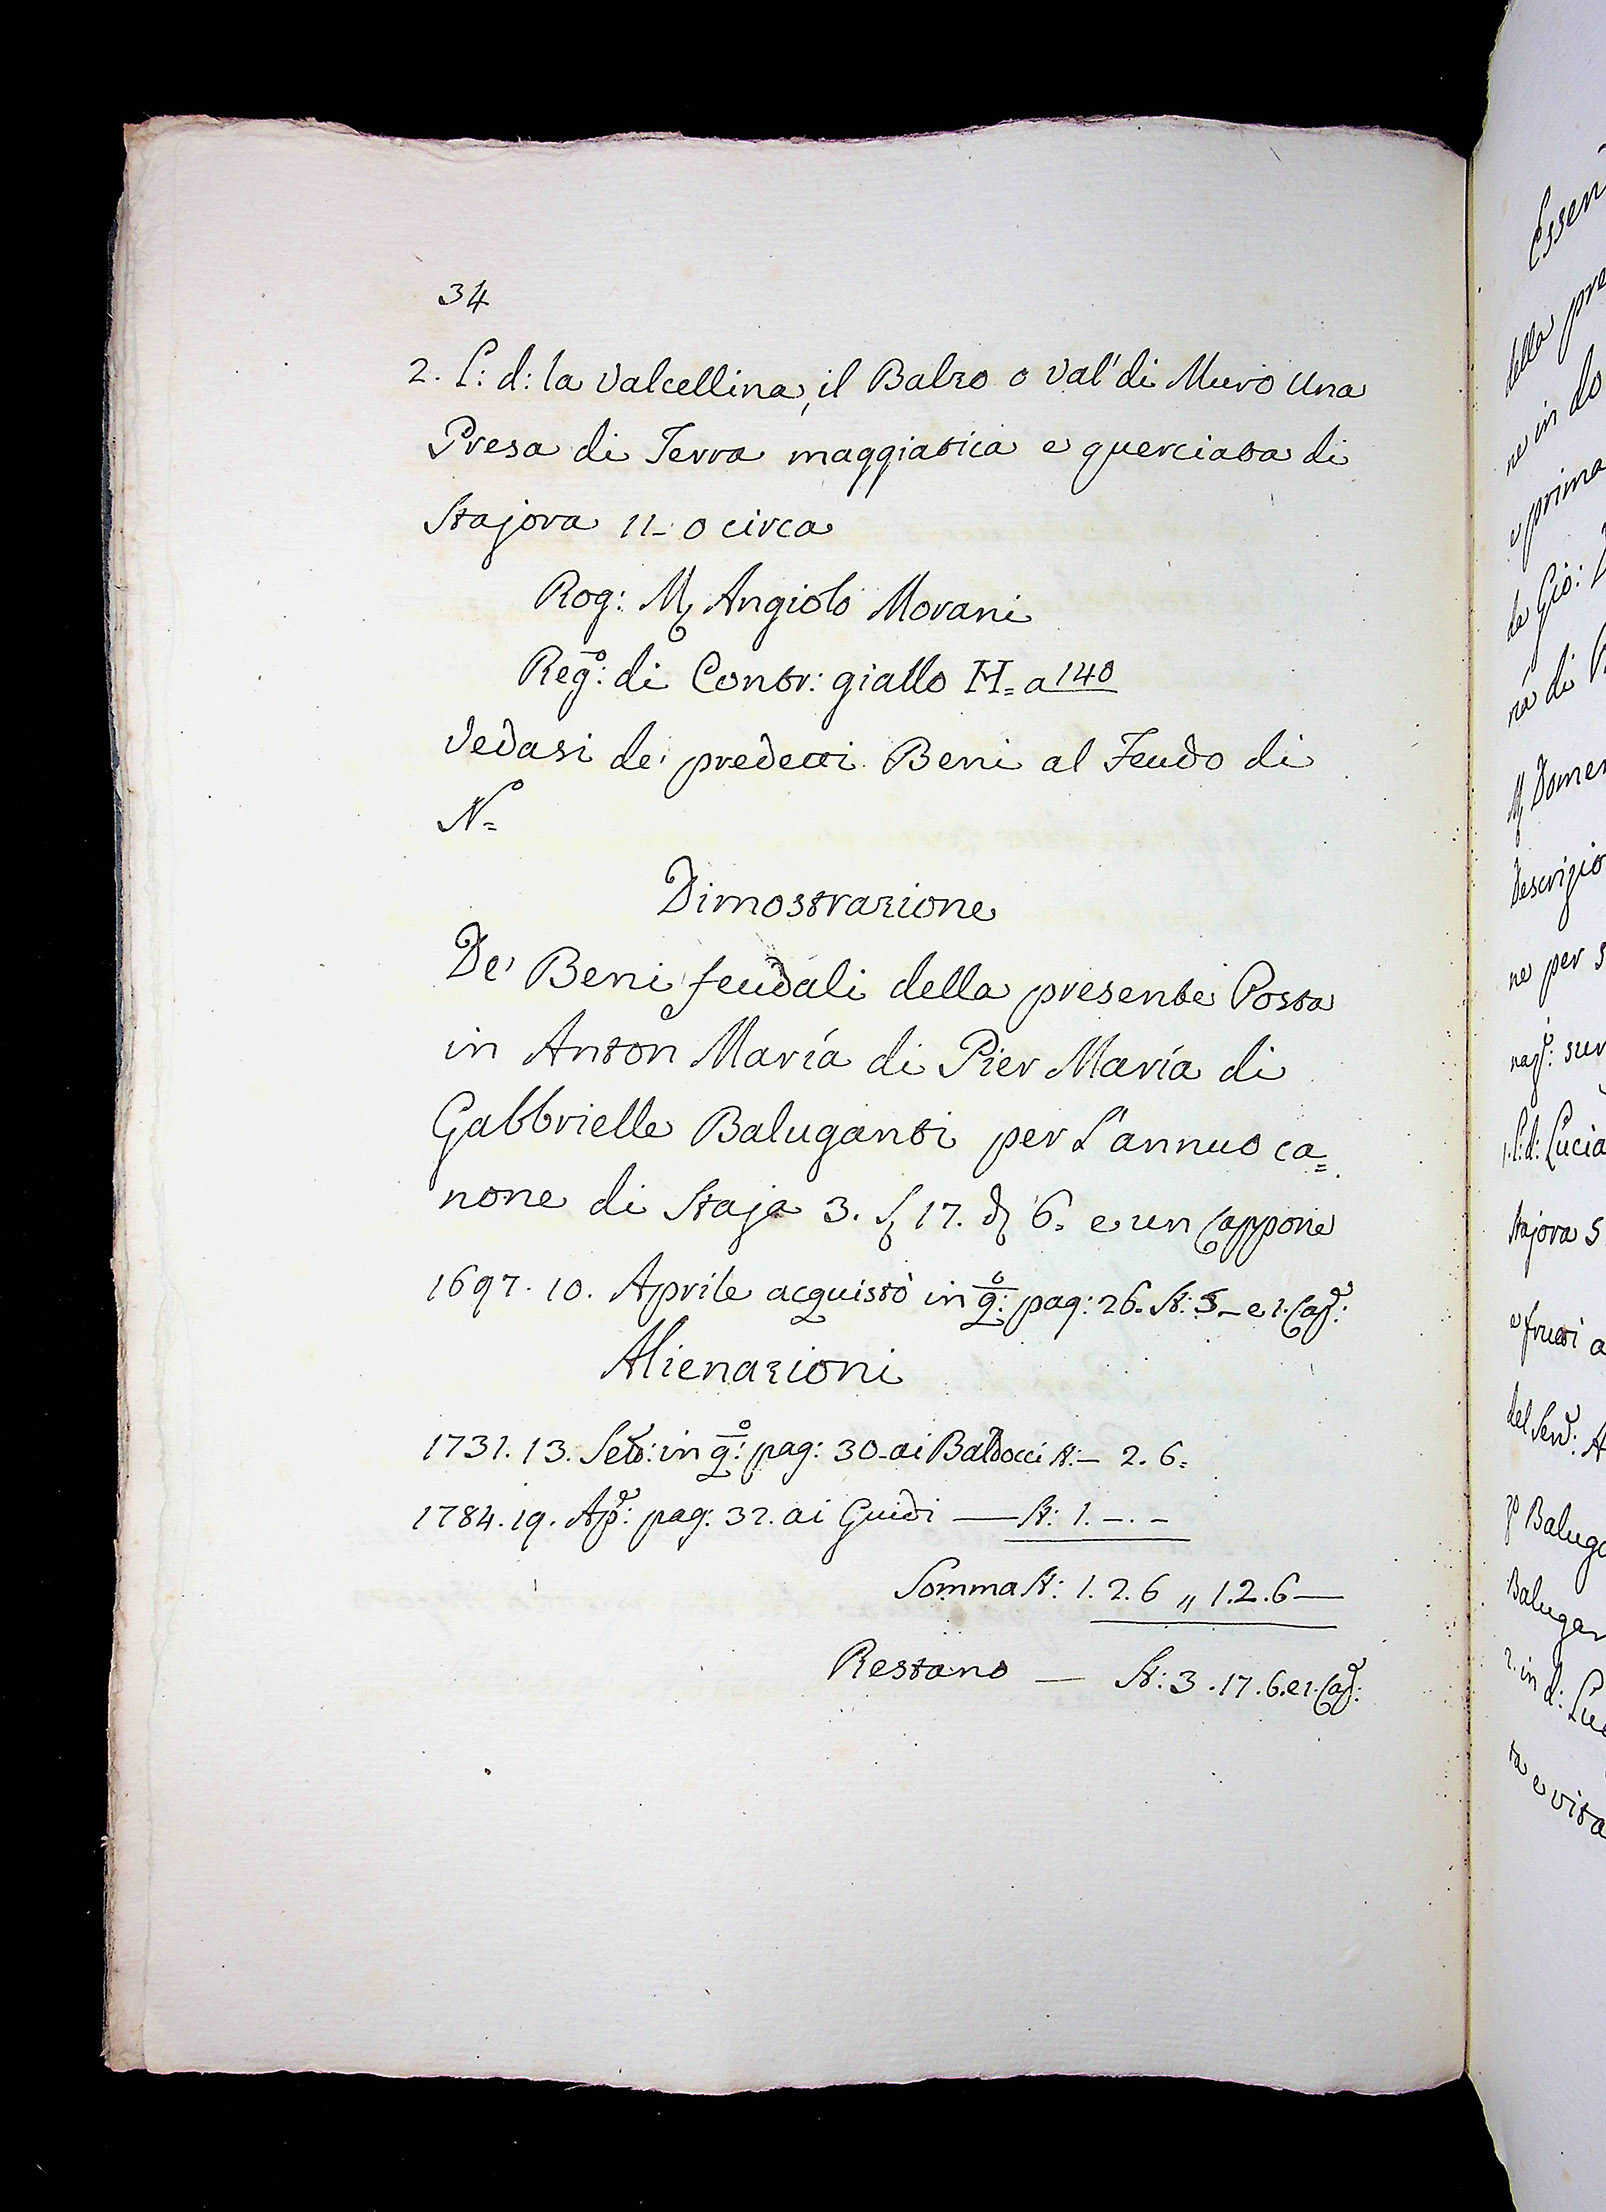 34
2. L: d: la Valcellina, il Balzo o Val' di Muro Una
Presa di Terra maggiatica e querciata di
Stajora 11_ 0 circa
Rog: M Angiolo Morani
Reg:º di Contr: giallo H= a 140
Vedasi de' predetti Beni al Feudo di
Nº=
Dimostrazione
De' Beni feudali della presente Posta
in Anton María di Pier María di
Gabbrielle Baluganti per L'annuo ca=
none di Staja 3. S 17. d 6. e un Cappone
1697. 10. Aprile acquistò in q:º pag: 26. St: 5_ e 1. Cap:
Alienazioni
1731. 13. Set: in q:º pag: 30_ ai Baldocci St: — 2. 6=
1784. 19. Ap: pag: 32. ai Guidi — St: 1. _. _
Somma St: 1. 2. 6 „ 1. 2. 6 —
Restano — St: 3. 17. 6. e 1. Cap:
Essen
della pre
ne in do
e prima
de Gio:
ra di
M Domen
Descrizio
ne per s
sur
1. L: d: Lucia
Stajora 5
e frutti a
del Ser: A
Baluga
Balugan
2. in d: Luc
ta e vita